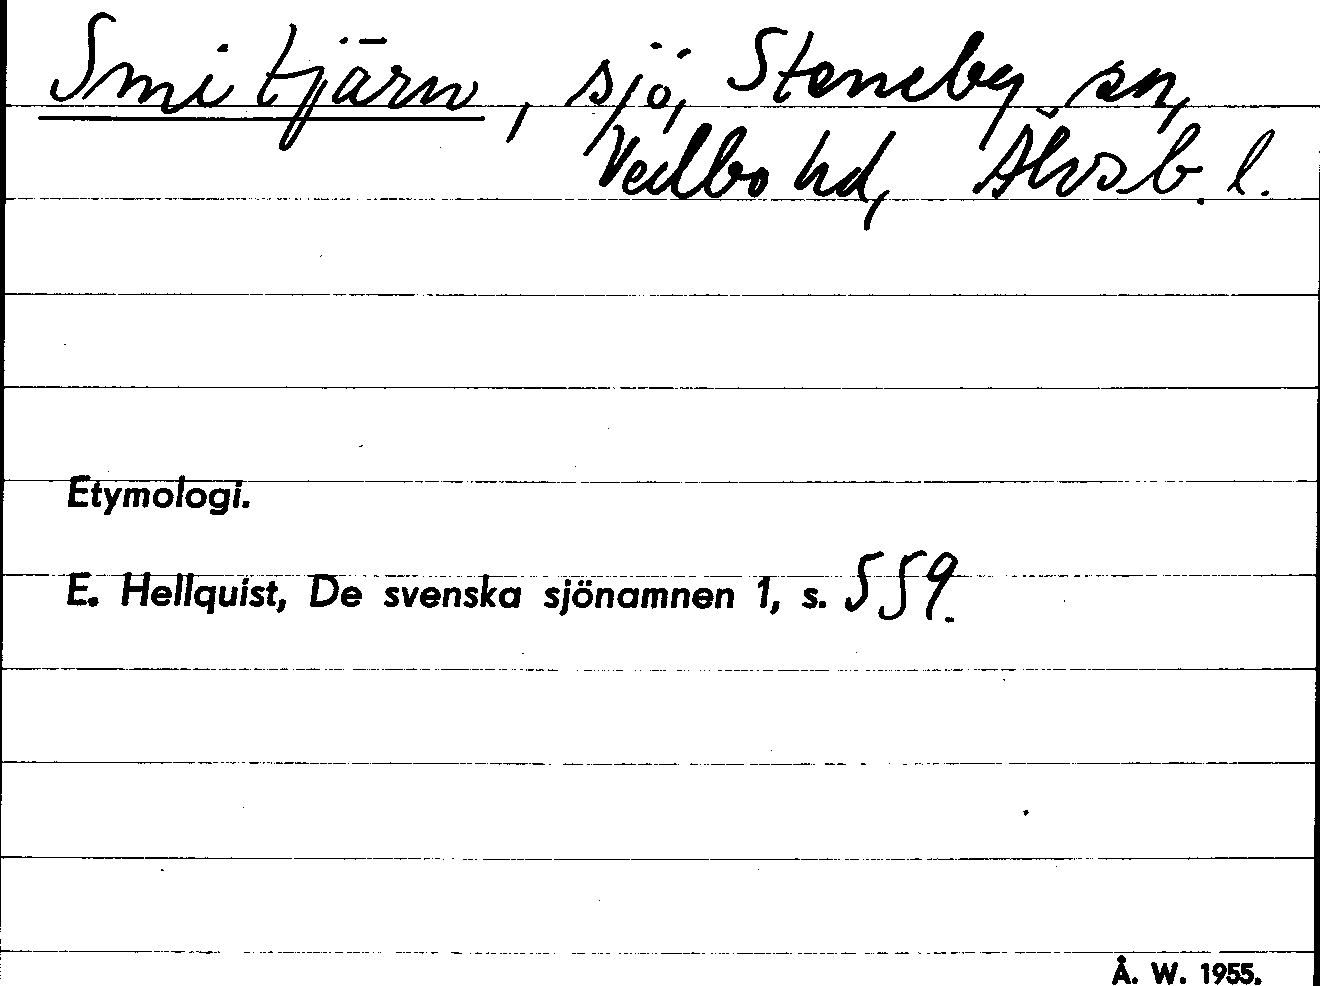 Smitjärn, sjö, Steneby sn,
Vedbo hd, Älvsb. l.
Etymologi.
E. Hellquist, De svenska sjönamnen 1, s. 559.
Å. W. 1955.